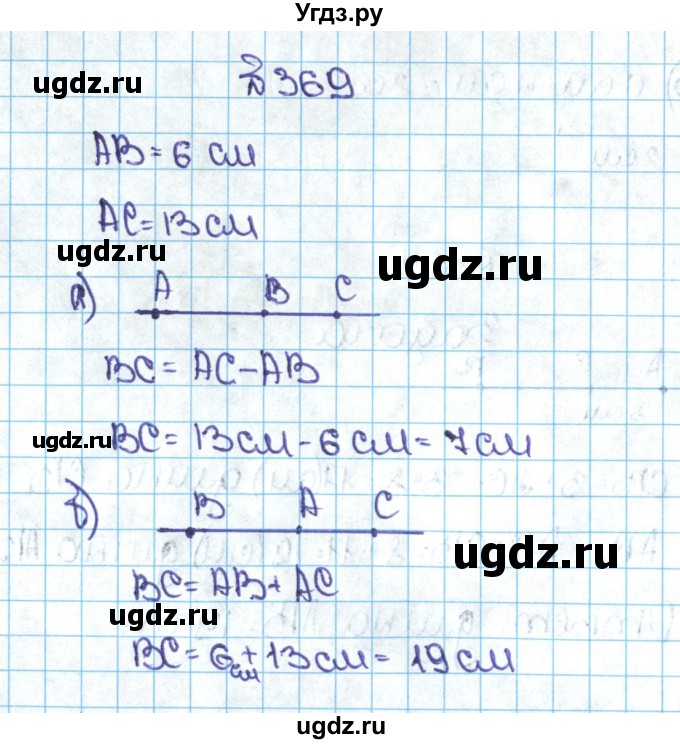 Угдз.ру
ugdz.ru
№369
AB=6 см
AC=13 см
ugdz.ru
ugdz.ru
а) A B C
BC= AC-AB
ugdz.ru
BC= 13 см - 6 см = 7 см
б) B A C
ugdz.ru
BC= AB+ AC
ugdz.ru
BC= 6 см + 13 см = 19 см
ugdz.ru